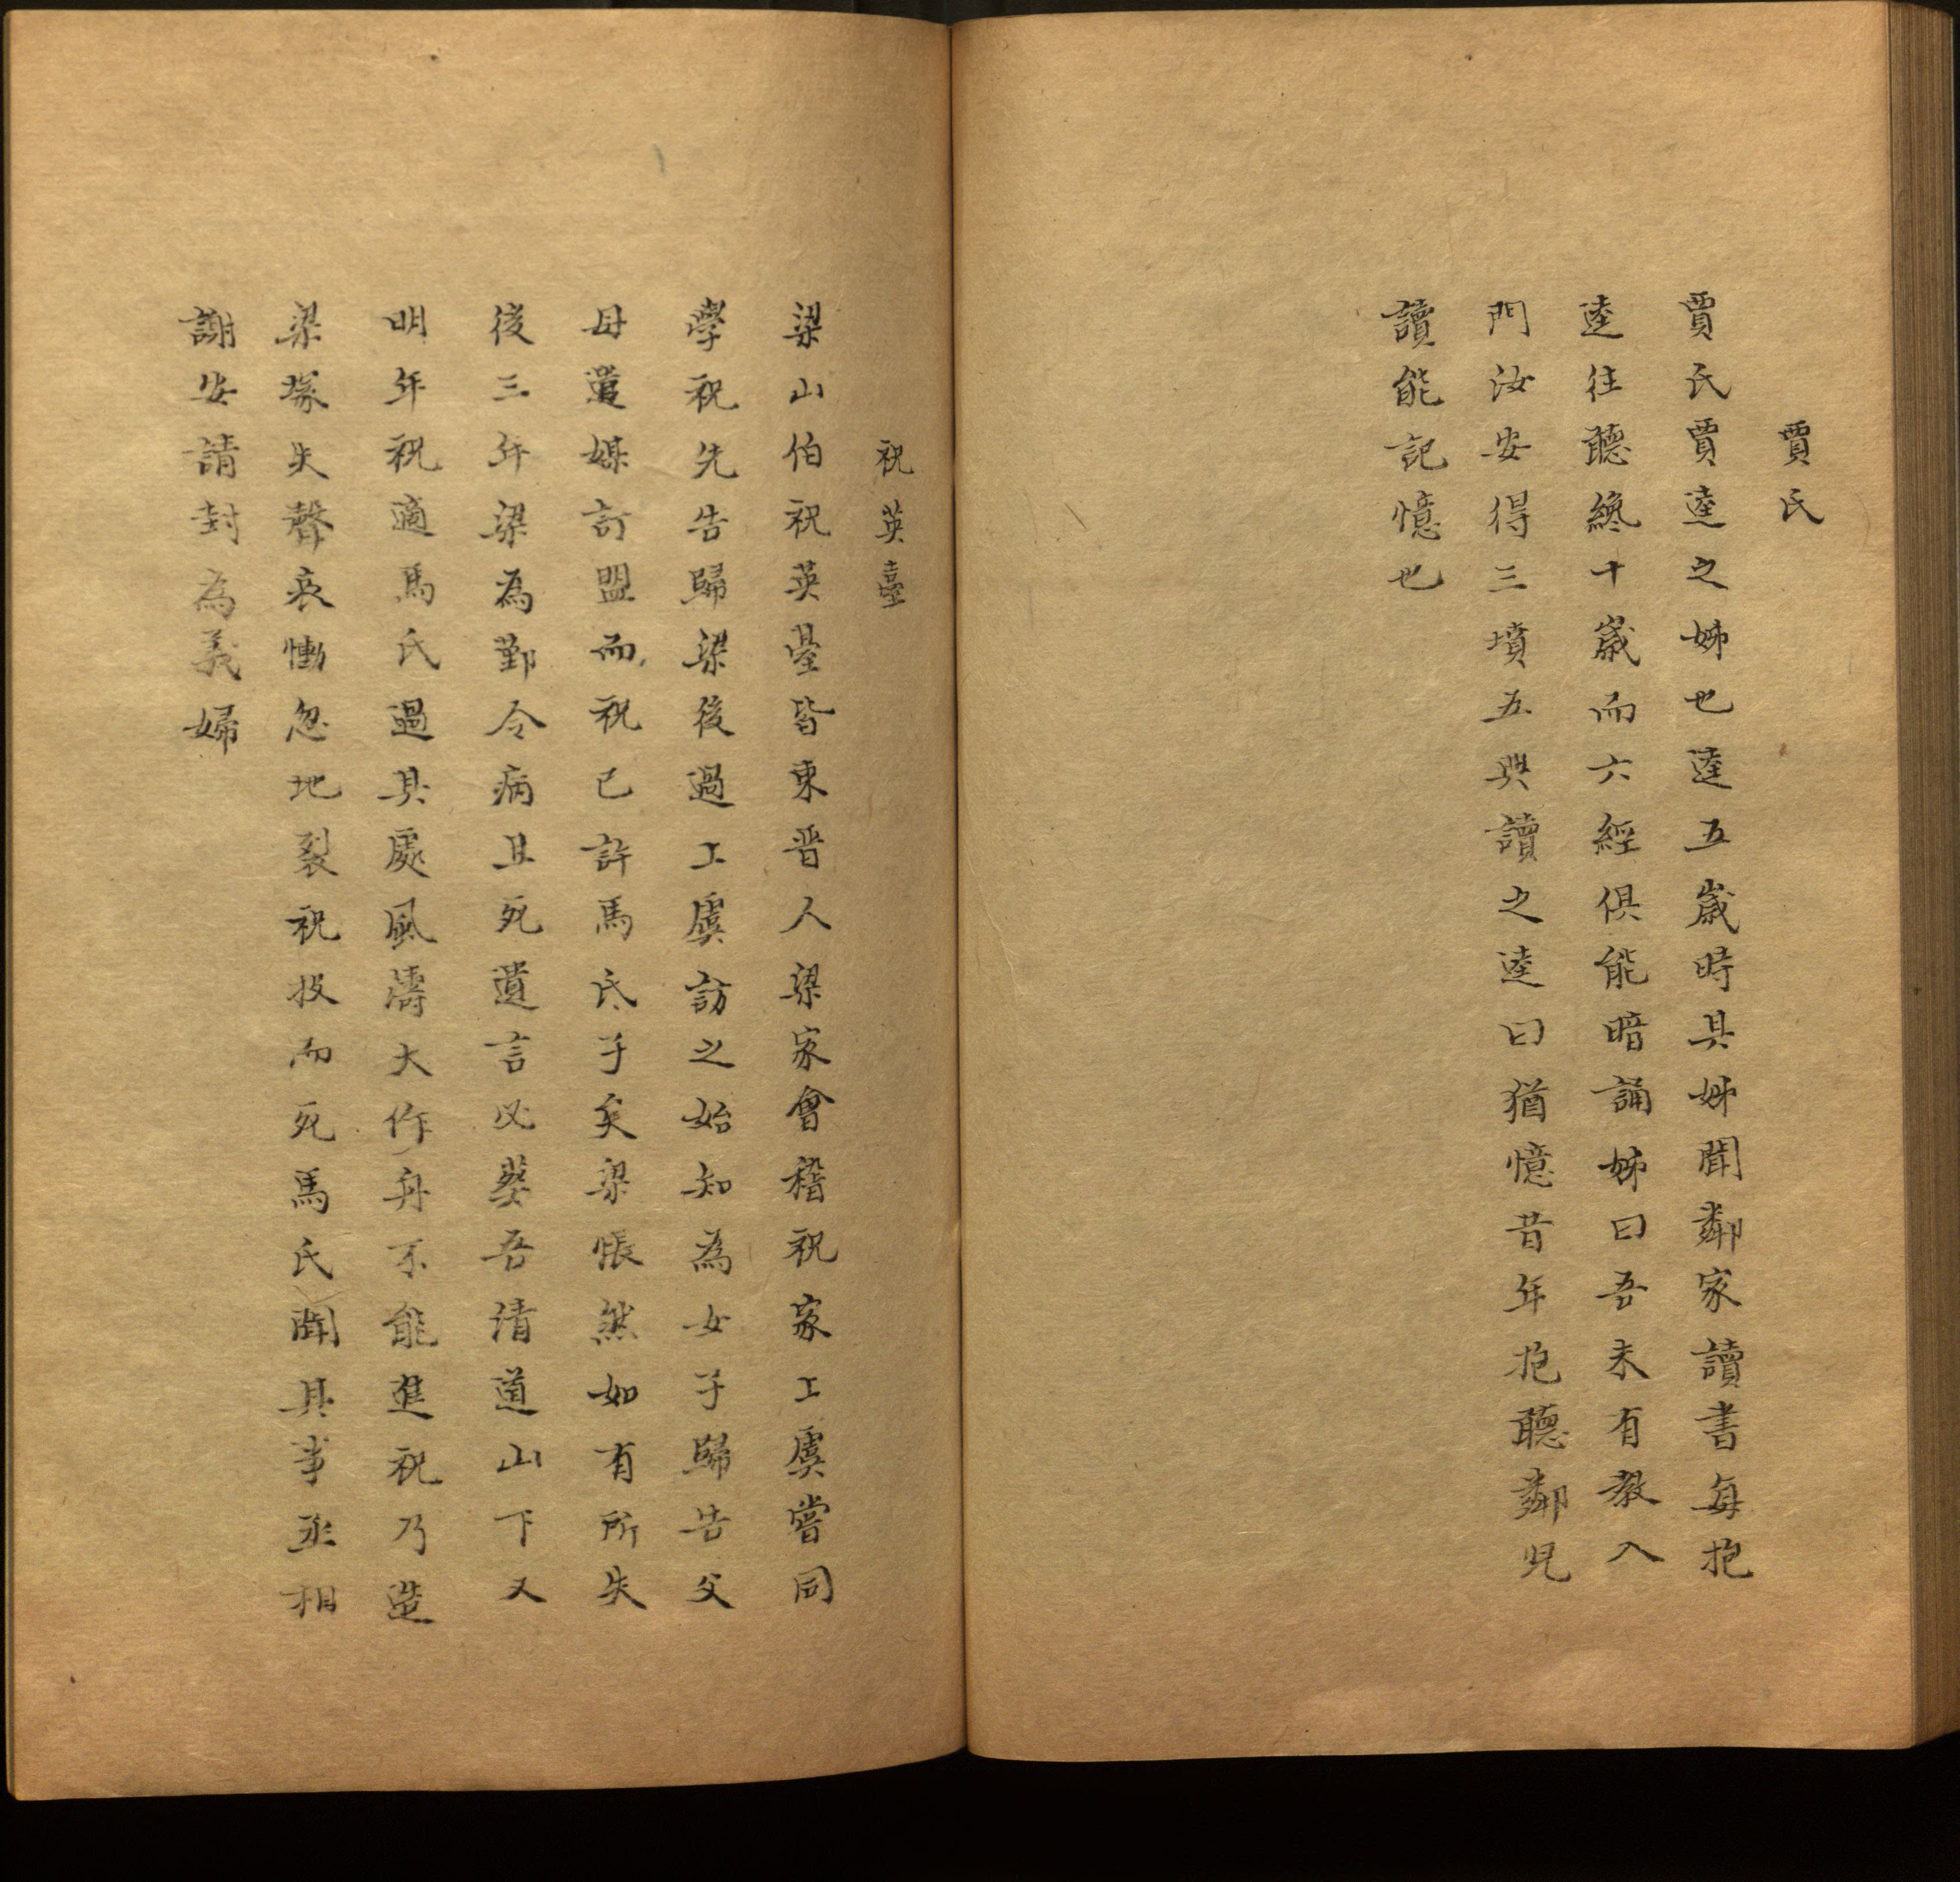 賈氏
賈氏賈逵之姊也逵五歲時其姊聞鄰家讀書每抱
逵往聽纔十歲而六經俱能暗誦姊曰吾未有教入
門汝安得三墳五典讀之逵曰猶憶昔年抱聽鄰兒
讀能記憶也
祝英臺
梁山伯祝英臺皆東晉人梁家會稽祝家上虞嘗同
學祝先告歸梁後過上虞訪之始知為女子歸告父
母遣媒訂盟而祝已許馬氏子矣梁悵然如有所失
後三年梁為鄞令病且死遺言必葬吾清道山下又
明年祝適馬氏過其處風濤大作舟不能進祝乃造
梁塚失聲哀慟忽地裂祝投而死馬氏聞其事丞相
謝安請封為義婦